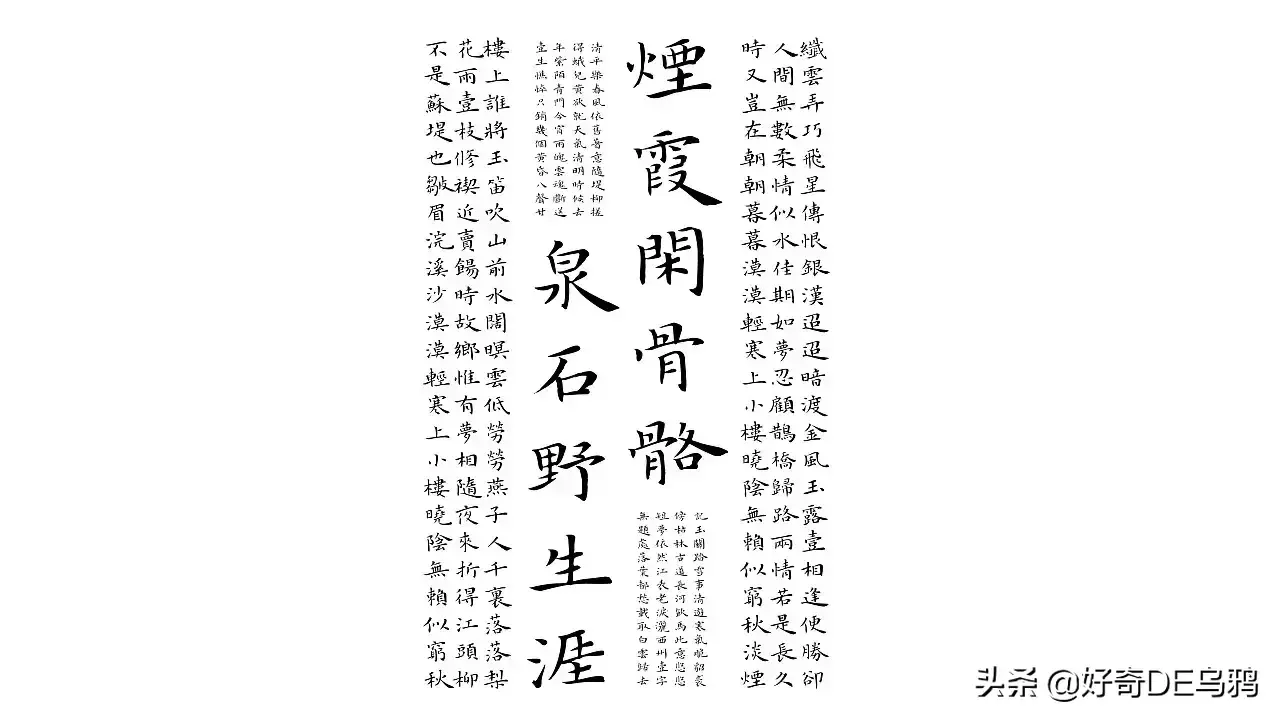 纖雲弄巧飛星傳恨銀漢迢迢暗渡金風玉露壹相逢便勝卻
人間無數柔情似水佳期如夢忍顧鵲橋歸路兩情若是長久
時又豈在朝朝暮暮漠漠輕寒上小樓曉陰無賴似窮秋淡煙
煙霞閑骨骼
記玉關踏雪事清遊寒氣脆貂裘
傍枯林古道長河飲馬此意悠悠
短夢依然江表老淚灑西州壹字
無題處落葉都愁載取白雲歸去
清平樂春風依舊著意隨堤柳搓
得蛾兒黃欲就天氣清明時候去
年紫陌青門今宵雨魄雲魂斷送
壹生憔悴只銷幾個黃昏八聲甘
泉石野生涯
樓上誰將玉笛吹山前水闊暝雲低勞勞燕子人千裏落落梨
花雨壹枝修禊近賣餳時故鄉惟有夢相隨夜來折得江頭柳
不是蘇堤也皺眉浣溪沙漠漠輕寒上小樓曉陰無賴似窮秋
头条 @好奇DE乌鸦